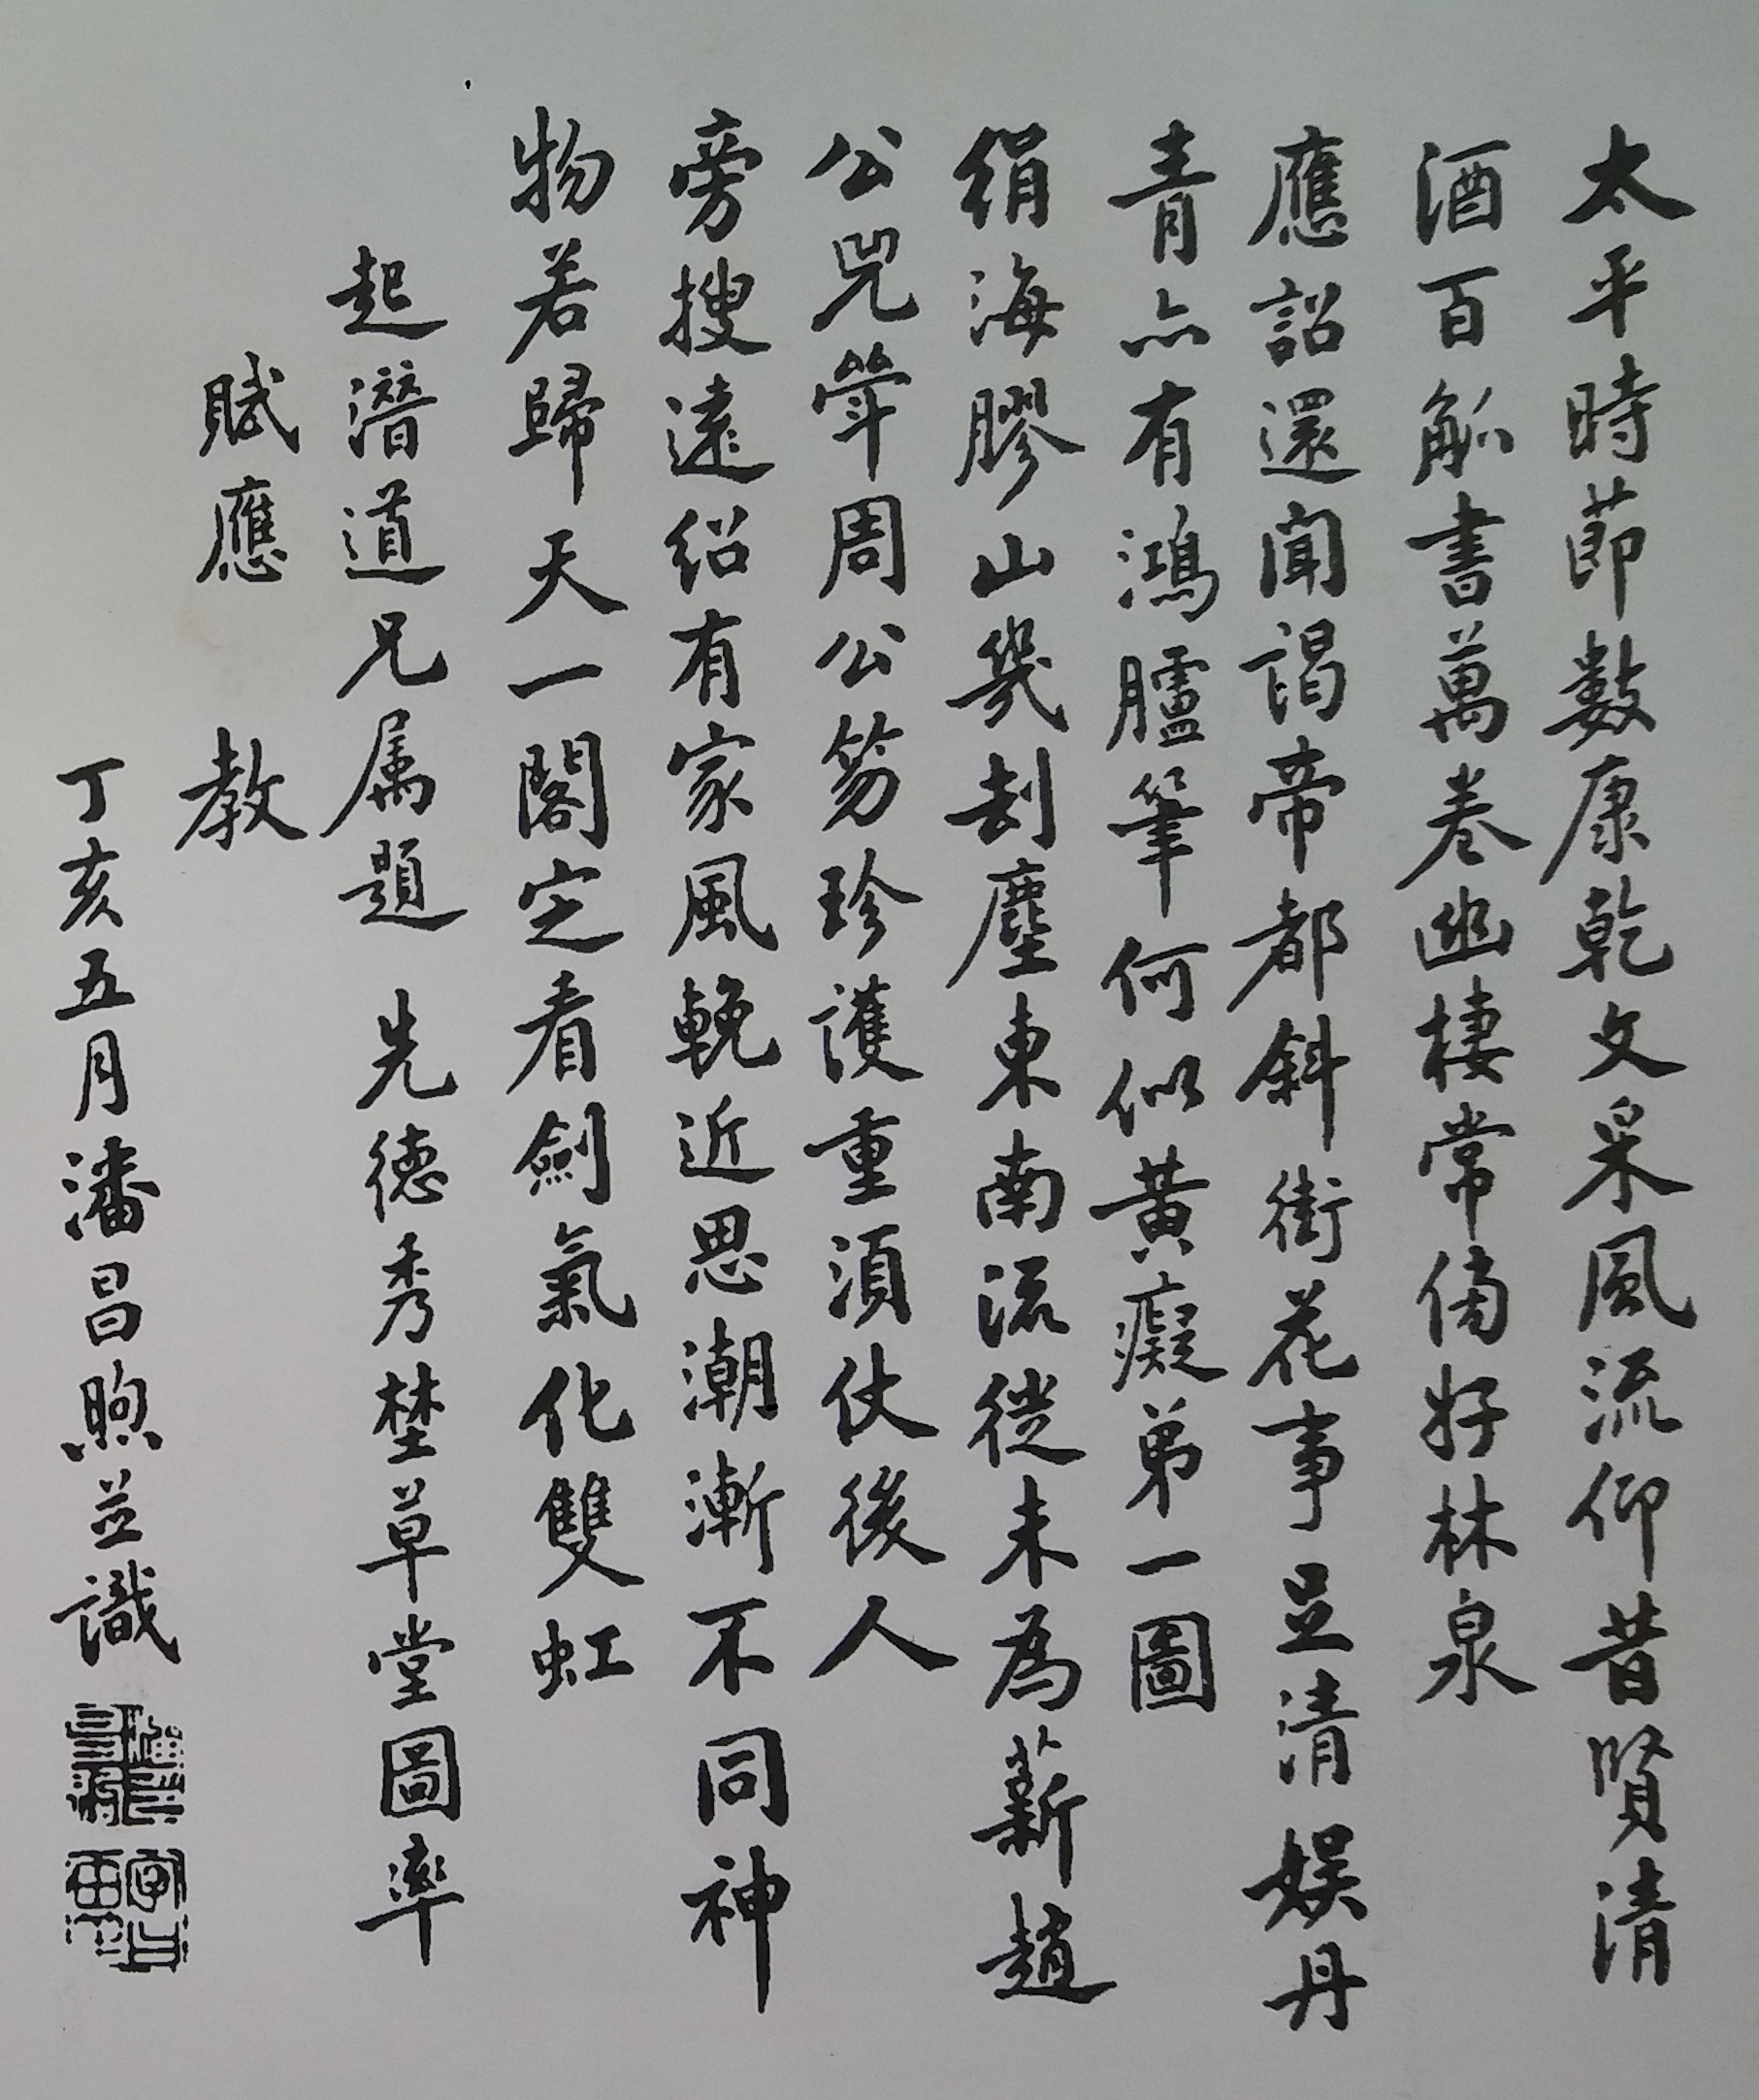 太平時節數康乾文采風流仰昔賢清
酒百觚書萬卷幽棲常傍好林泉
應詔還聞謁帝都斜街花事足清娛丹
青亦有鴻臚筆何似黃癡弟一圖
絹海膠山幾刧塵東南流徙未為薪趙
公兕斝周公笏珍護重須仗後人
旁搜遠紹有家風輓近思潮漸不同神
物若歸天一閣定看劍氣化雙虹
起潛道兄属題 先德秀埜草堂圖率
賦應 教
丁亥五月潘昌煦並識